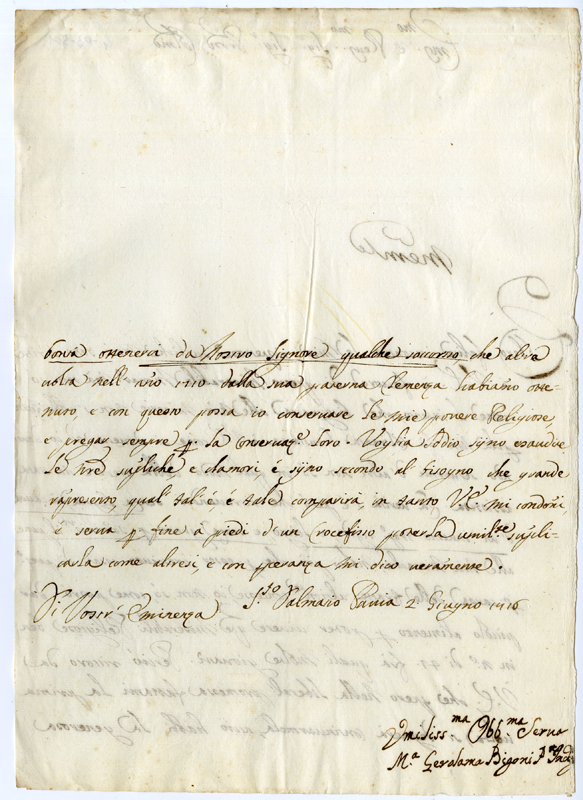 bontà ottenerci da Nostro Signore qualche soccorso che altra
volta nell' año 1710 dalla sua paterna Clemenza habiamo otte-
nuto, e con questo possa io conservare le mie povere Religiose,
e pregar sempre p la Conservaz.e loro. Voglia Iddio, sijno exaudite
le nre supliche, e clamori, e sijno secondo al bisogno che quando
rapresento, qual' tal' è é tale comparirà, in tanto V.E. mi condoni,
é serva p fine à piedi d'un Crocefisso poterla umil.te supli-
carla come altresi, e con speranza mi dico veramente.
Di Vostr' Eminenza
S.to Dalmaio Pavia 2 Giugno 1716
Umiliss.ma Obb.ma Serva
M.a Gerolama Bigoni